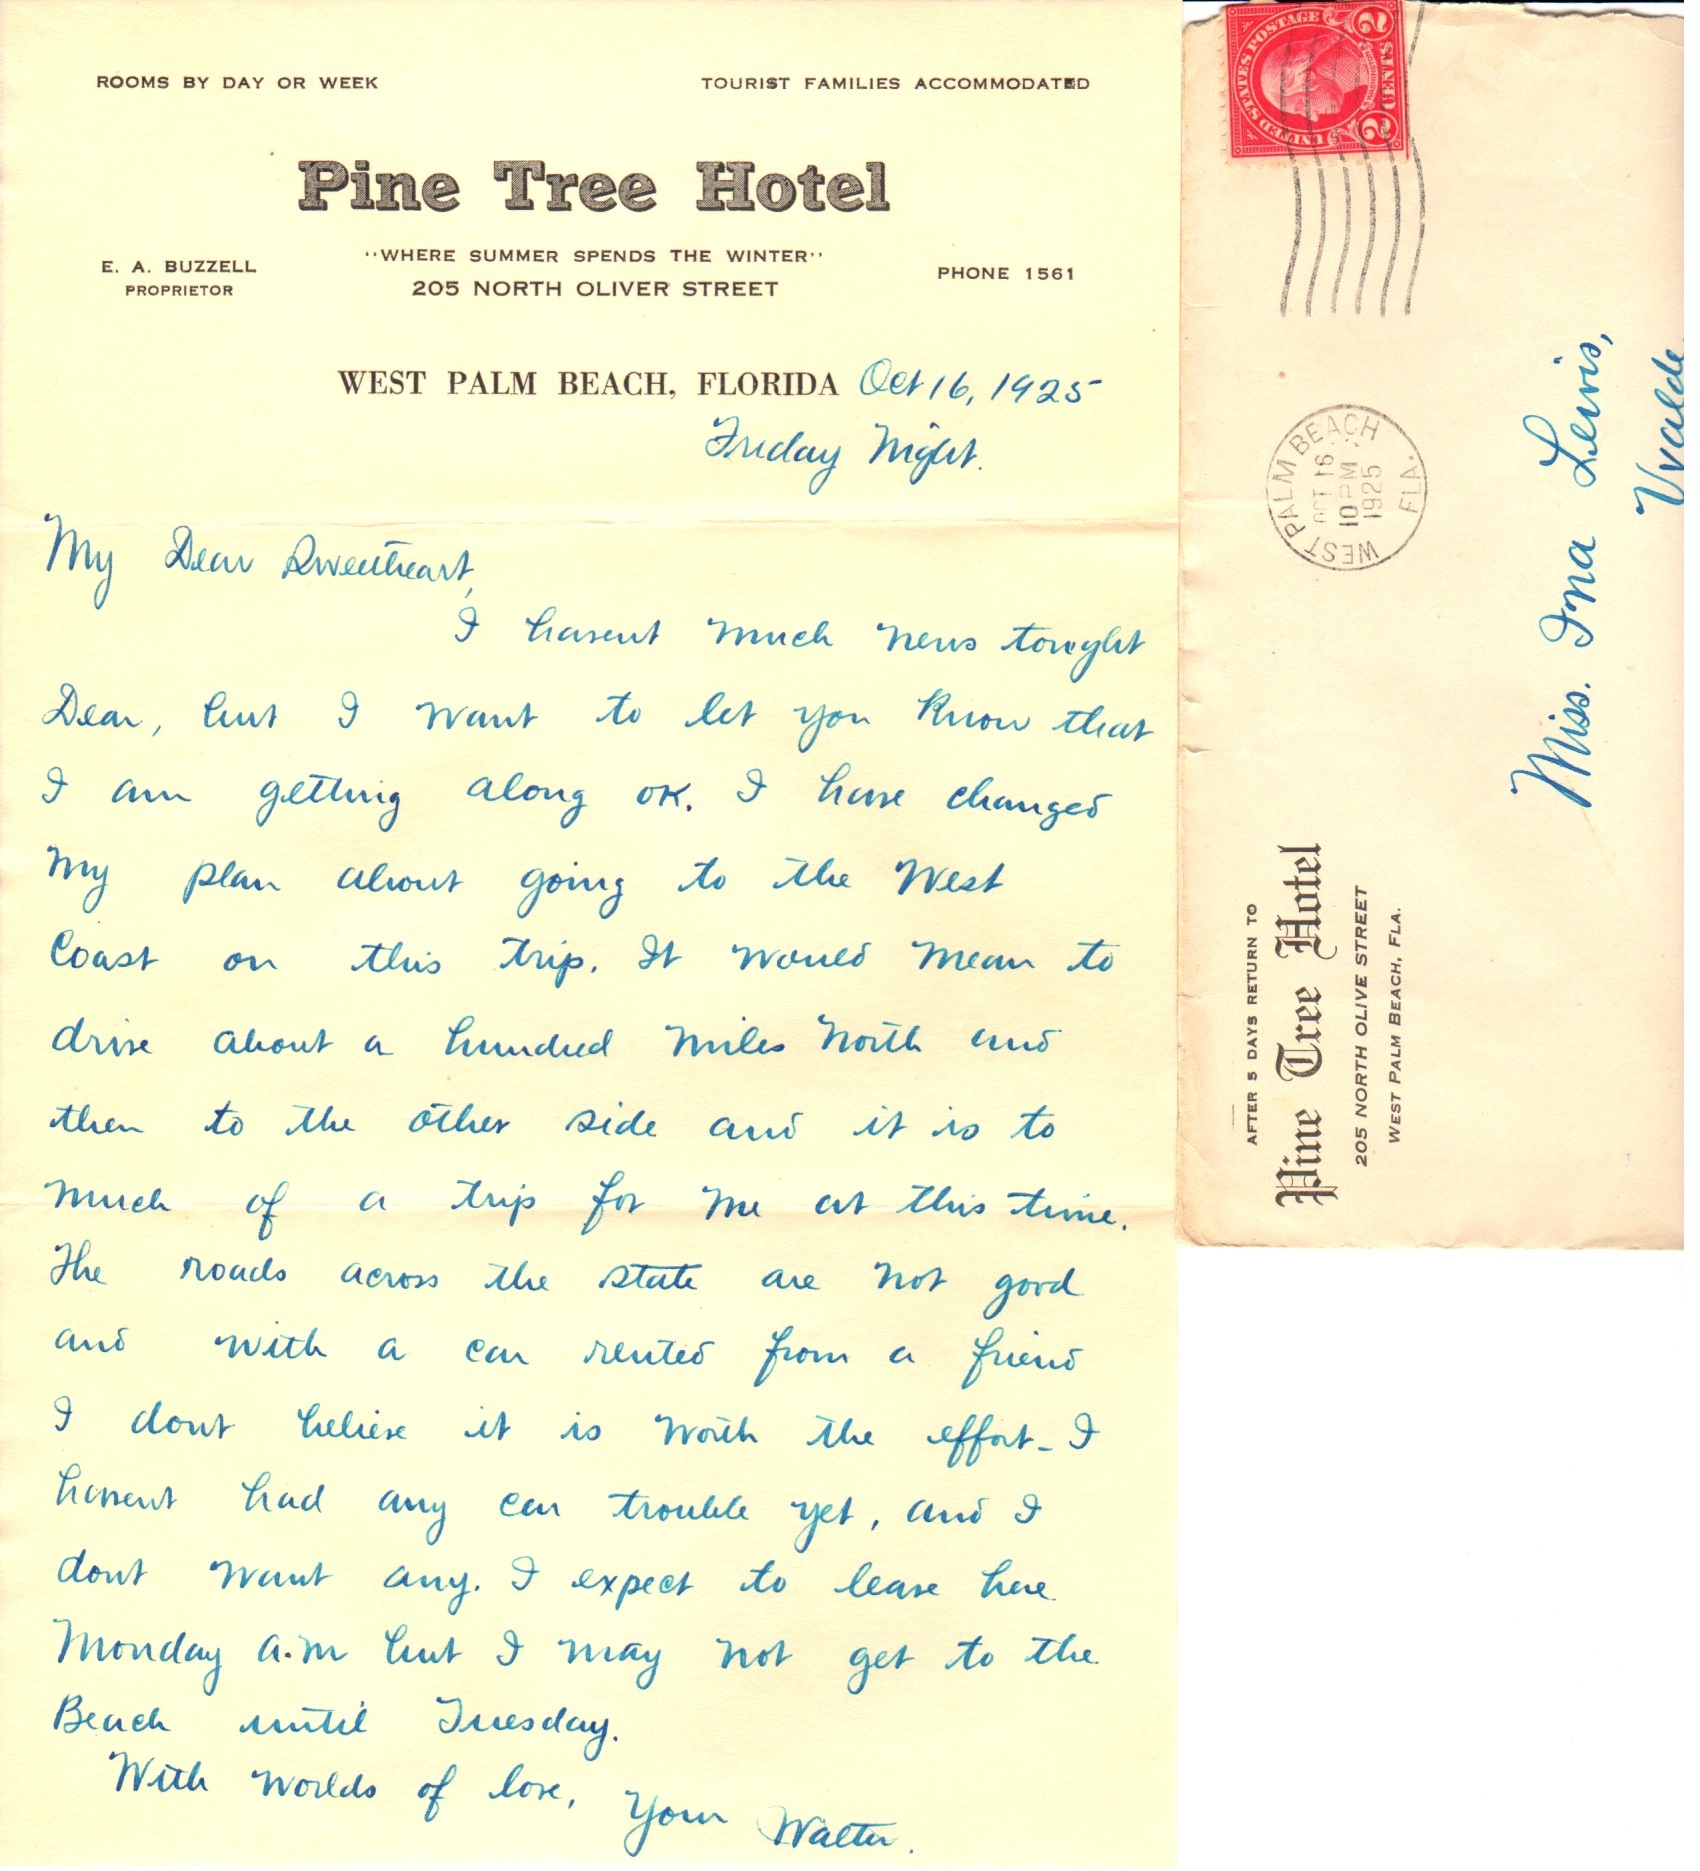 ROOMS BY DAY OR WEEK
TOURIST FAMILIES ACCOMMODATED
Pine Tree Hotel
"WHERE SUMMER SPENDS THE WINTER"
E. A. BUZZELL
PROPRIETOR
205 NORTH OLIVER STREET
PHONE 1561
WEST PALM BEACH, FLORIDA Oct 16, 1925
Friday Night.
My Dear Sweetheart,
I havent much news tonight
Dear, but I want to let you know that
I am getting along OK. I have changed
my plan about going to the West
Coast on this trip. It would mean to
drive about a hundred miles North and
then to the other side and it is to
much of a trip for me at this time.
The roads across the state are not good
and with a car rented from a friend
I dont believe it is worth the effort - I
havent had any car trouble yet, and I
dont want any. I expect to leave here
Monday A.M but I may not get to the
Beach until Tuesday.
With worlds of love,
Your Walter.
UNITED STATES POSTAGE
2 CENTS 2
WEST PALM BEACH
FLA.
OCT 16
10 PM
1925
AFTER 5 DAYS RETURN TO
Pine Tree Hotel
205 NORTH OLIVE STREET
WEST PALM BEACH, FLA.
Miss. Ina Lewis,